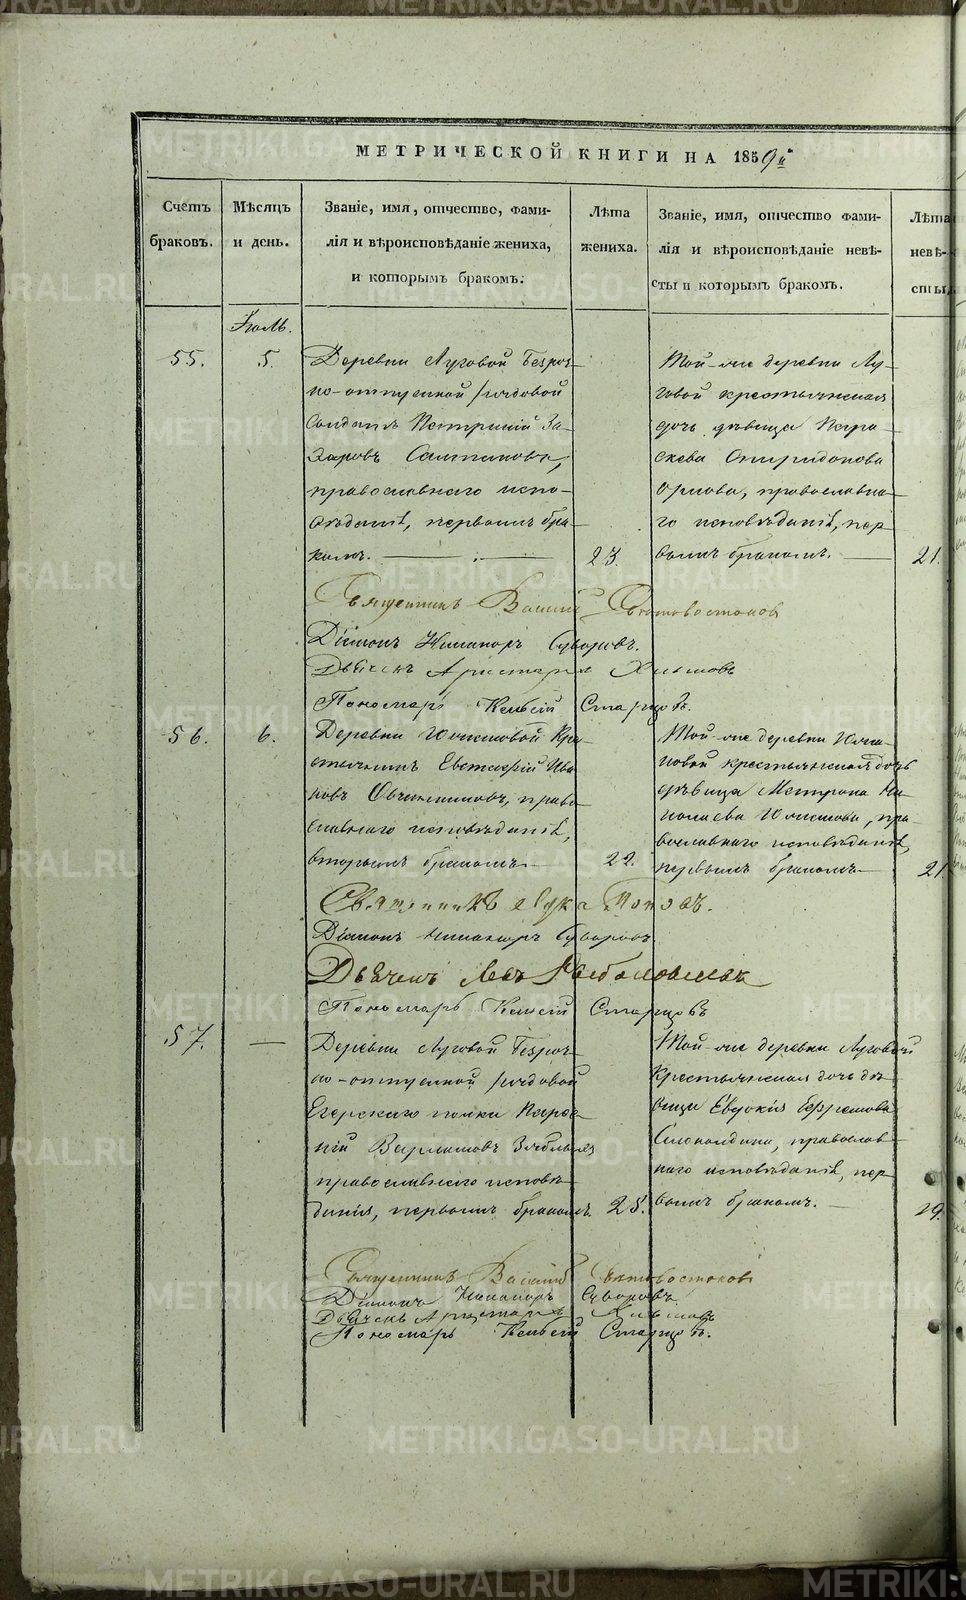 МЕТРИЧЕСКОЙ КНИГИ НА 1859й
Счетъ браковъ.
Мѣсяцъ и день.
Званіе, имя, отчество, фами-
лія и вѣроисповѣданіе жениха,
и которымъ бракомъ.
Лѣта жениха.
Званіе, имя, отчество фами-
лія и вѣроисповѣданіе невѣ-
сты и которымъ бракомъ.
Лѣта
невѣ-
сты
Іюль.
55.
5.
Деревни Луговой безсроч-
но-отпускной рядовой
Солдатъ За-
харовъ
православнаго испо-
вѣданія, первымъ бра-
комъ.
23.
Той-же деревни Лу-
говой крестьянская
дочь дѣвица Пара-
скева Спиридонова
Орлова, православна-
го исповѣданія, пер-
вымъ бракомъ.
21.
Священникъ Василій
Діаконъ Никаноръ Суворовъ.
Дьячекъ Аристархъ
Пономарь Старцовъ.
56.
6.
Деревни Кре-
стьянинъ Ива-
новъ Овчинниковъ, право-
славнаго исповѣданія,
вторымъ бракомъ
22.
Той-же деревни
крестьянская дочь
дѣвица Матрона Ни-
колаева пра-
вославнаго исповѣданія,
первымъ бракомъ
21.
Священникъ Лука Поповъ.
Діаконъ Никаноръ Суворовъ
Дьячекъ Левъ
Пономарь Старцовъ
57.
—
Деревни Луговой безсроч-
но-отпускной рядовой
Егерскаго полка
Варламовъ
православнаго исповѣ-
данія, первымъ бракомъ
25.
Той-же деревни Луговой
крестьянская дочь дѣ-
вица Евдокія Ефремова
православ-
наго исповѣданія, пер-
вымъ бракомъ.
19.
Священникъ Василій
Діаконъ Никаноръ Суворовъ
Дьячекъ Аристархъ
Пономарь Старцовъ.
METRIKI.GASO-URAL.RU